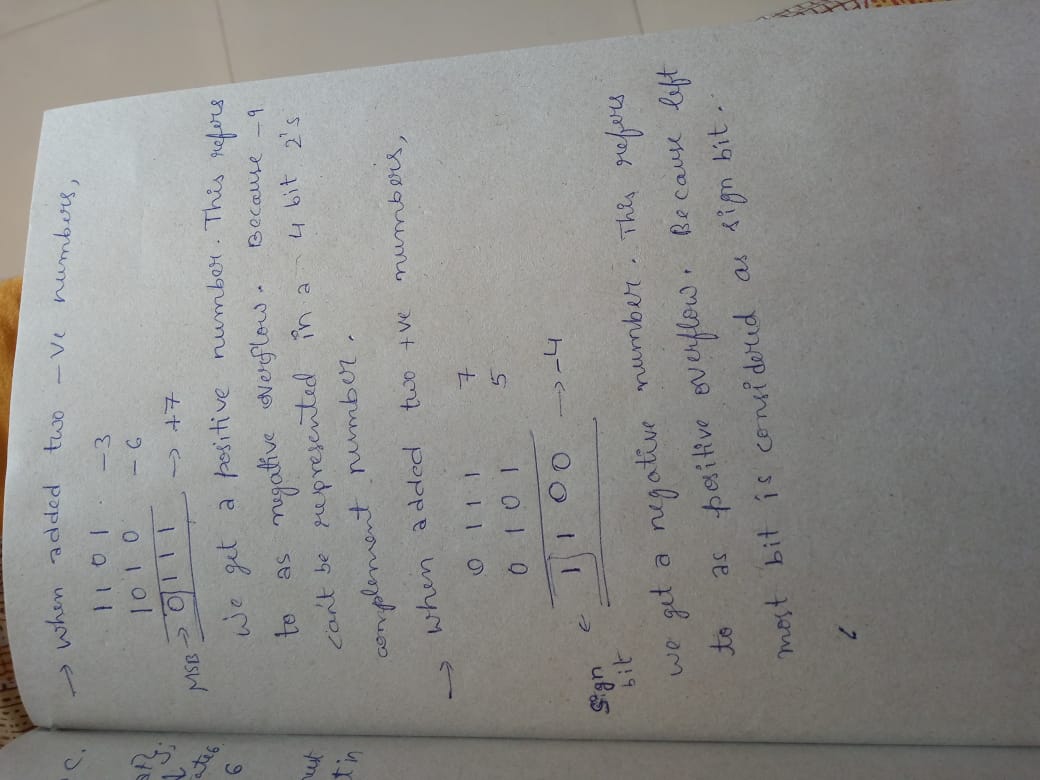 → when added two -ve numbers,
1 1 0 1 -3
1 0 1 0 -6
MSB → 0 1 1 1 → +7
we get a positive number. This refers
to as negative overflow. Because -9
can't be represented in a 4 bit 2's
complement number.
→ when added two +ve numbers,
0 1 1 1 7
0 1 0 1 5
Sign bit ← 1 1 0 0 → -4
we get a negative number. This refers
to as positive overflow. Because left
most bit is considered as sign bit.
c.
6